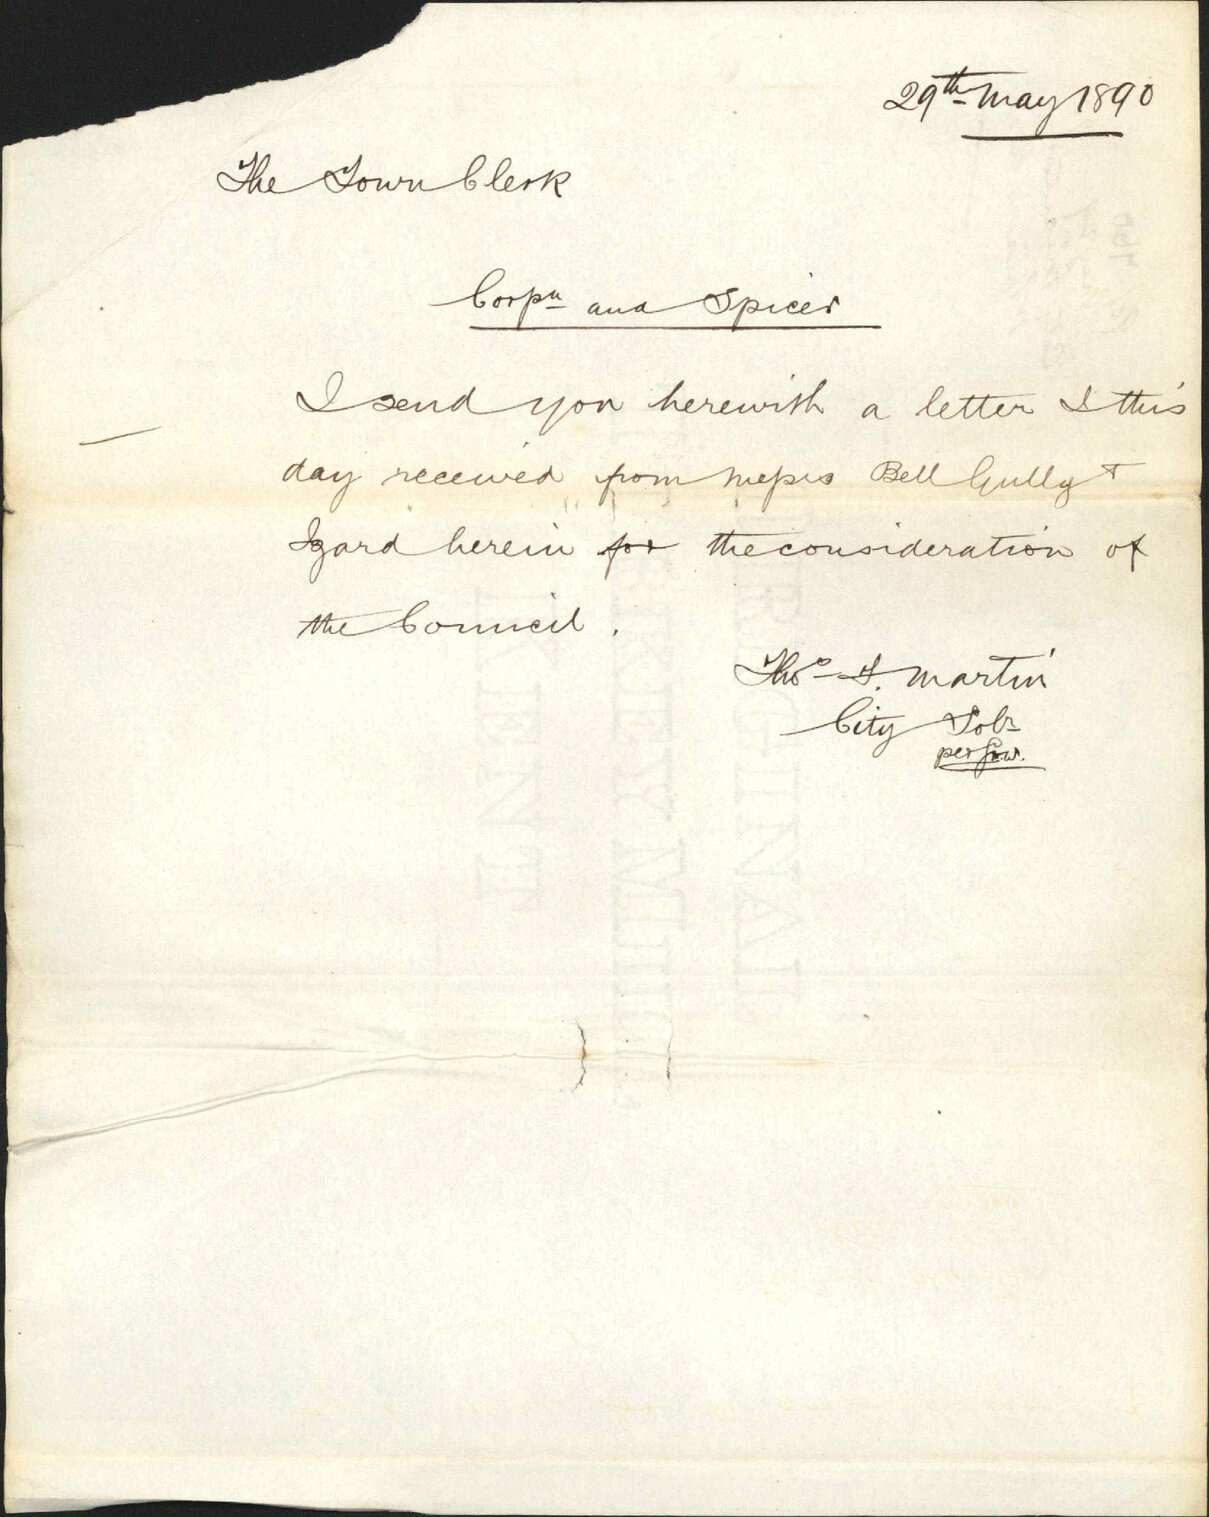 29th May 1890
The Town Clerk
Corpn and Spicer
I send you herewith a letter I this
day received from Messrs Bell Gully &
Izard herein for the consideration of
the Council.
Thos S. Martin
City Solr
per